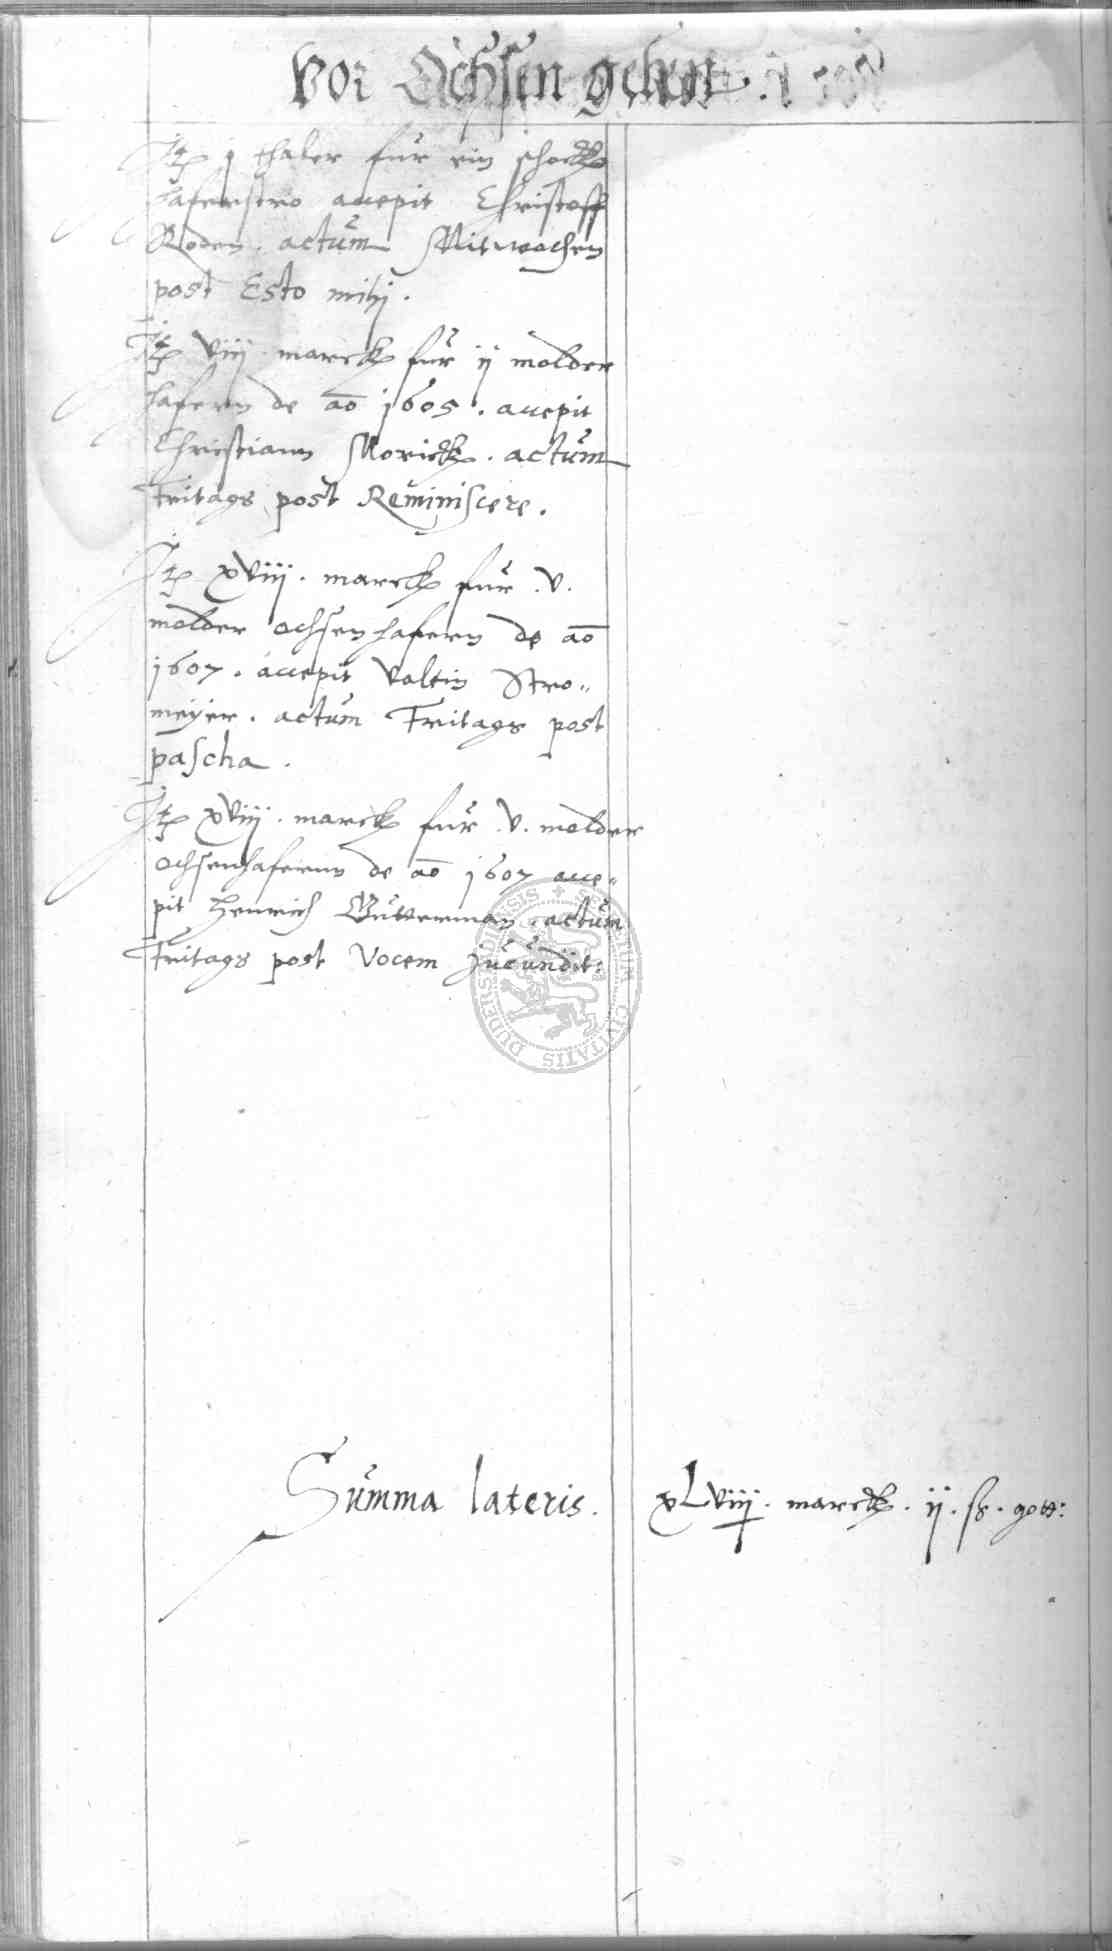 Vor Ochsen geben.
It(em) j thaler fur ein schock
haferstro accepit Christoff
Roden. actum Mitwochen
post Esto mihj.
It(em) viij. marck fur ij molder
hafern de ao 1605. accepit
Christiann Morick. actum
Fritags post Reminiscere.
It(em) xviij. marck fur .v.
molder ochsenhafern de ao
1607. accepit Valtin Stro„
meyer. actum Fritags post
pascha.
It(em) xviij. marck fur .v. molder
ochsenhafern de ao 1607 acce„
pit Henrich actum
Fritags post Vocem Jucundit:
Summa lateris. xLviij. marck. ij. ß. gott:
SECRETUM CIVITATIS DUDERSTADENSIS